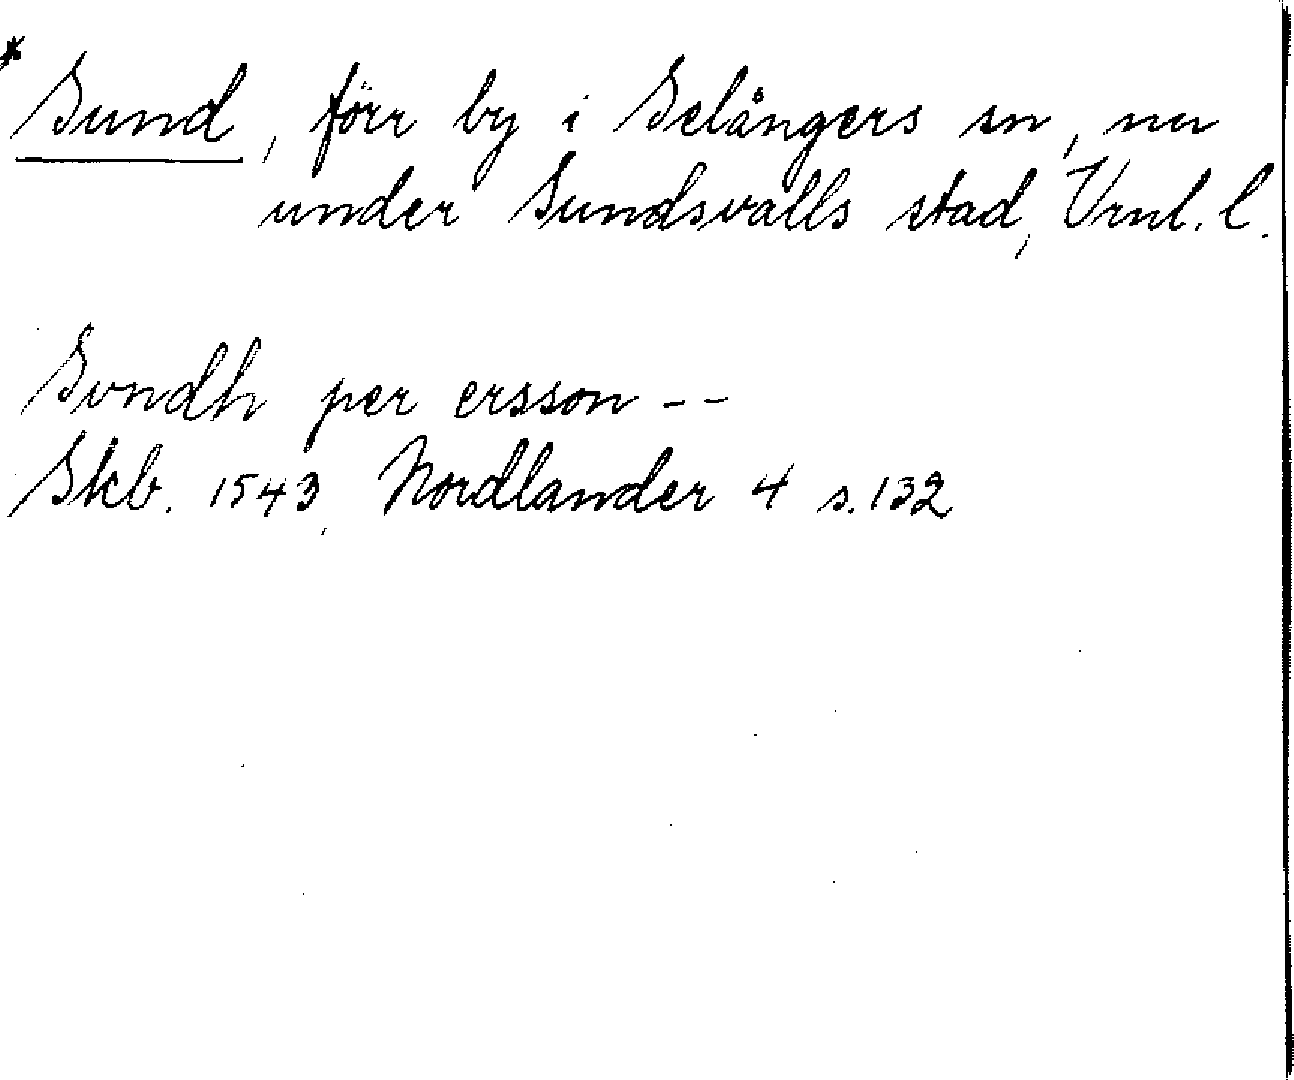 * Sund, förr by i Selångers sn, nu
under Sundsvalls stad, Vrnl. l.
Svndh per ersson --
Skb. 1543, Nordlander 4 s. 132